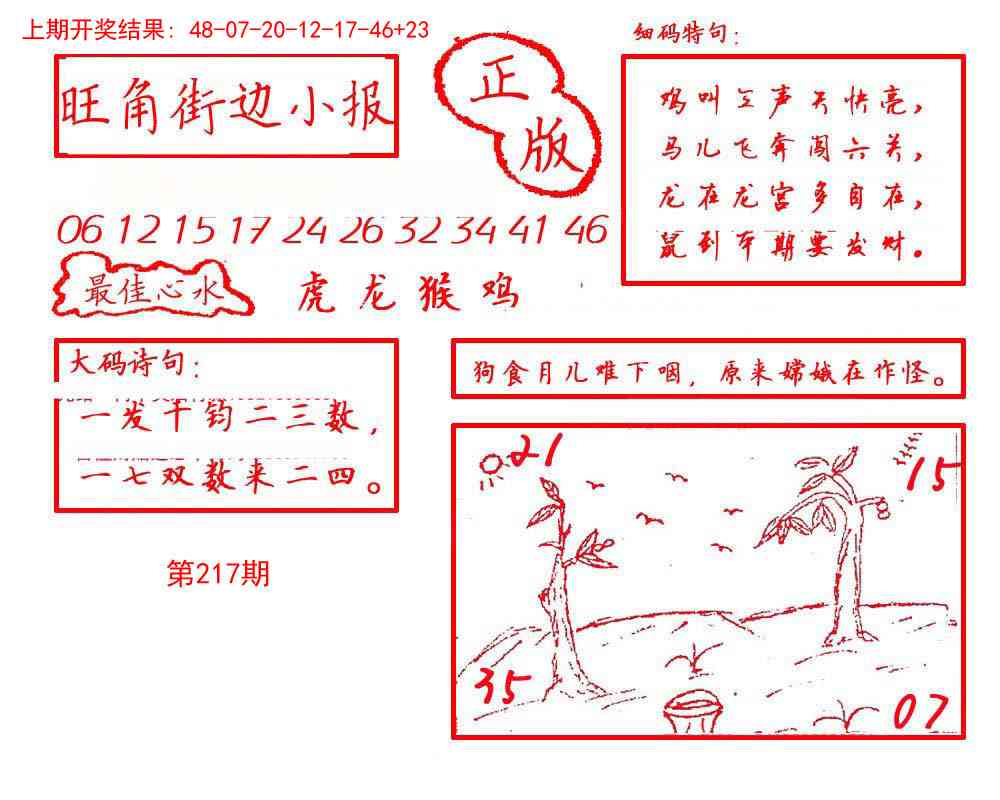 上期开奖结果: 48-07-20-12-17-46+23
细码特句:
旺角街边小报
正版
鸡叫三声天快亮,
马儿飞奔闯六关,
龙在龙宫多自在,
鼠到本期要发财。
06 12 15 17 24 26 32 34 41 46
最佳心水
虎龙猴鸡
大码诗句:
一发千钧二三数,
一七双数来二四。
狗食月儿难下咽, 原来嫦娥在作怪。
21
15
35
07
第217期